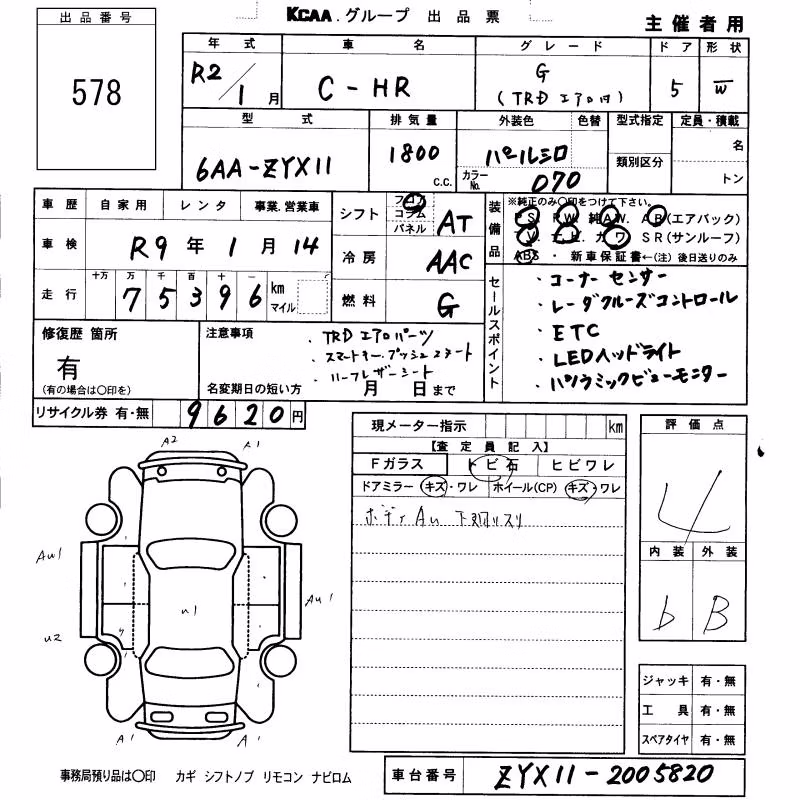 出品番号
578
KCAA.グループ 出品票
主催者用
年式
R2/1月
車名
C-HR
グレード
G
(TRD エアロ付)
ドア
5
形状
W
型式
6AA-ZYX11
排気量
1800 c.c.
外装色
パールシロ
色替
カラーNo.
070
型式指定
類別区分
定員・積載
名
トン
車歴 自家用 レンタ 事業.営業車
車検 R9年1月14
走行
十万 万 千 百 十 一
7 5 3 9 6 km マイル
シフト
フロア
コラム
パネル
AT
冷房 AAC
燃料 G
装備品
※純正のみ〇印をつけて下さい。
P.S. P.W. 純A.W. A.B(エアバック)
T.V. ナビ. カワ SR(サンルーフ)
ABS・新車保証書←(注)後日送りのみ
セールスポイント
・コーナーセンサー
・レーダクルーズコントロール
・ETC
・LEDヘッドライト
・パノラミックビューモニター
修復歴 箇所
有
(有の場合は〇印を)
注意事項
・TRDエアロパーツ
・スマートキー.プッシュスタート
・ハーフレザーシート
名変期日の短い方 月 日まで
リサイクル券 有・無 9620円
現メーター指示 km
【査定員記入】
Fガラス トビ石 ヒビワレ
ドアミラー キズ・ワレ ホイール(CP) キズ・ワレ
ボディAu 下廻リスリ
評価点
4
内装 外装
b B
ジャッキ 有・無
工具 有・無
スペアタイヤ 有・無
A2 A1
AW1
U1
AU1
U2
A1 A1
事務局預り品は〇印 カギ シフトノブ リモコン ナビロム
車台番号 ZYX11-2005820